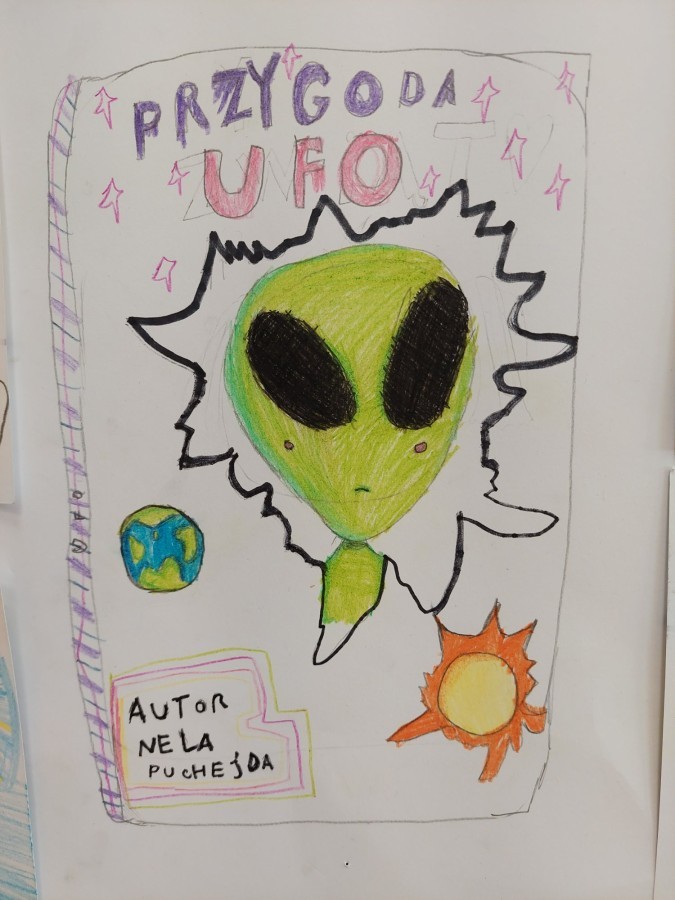 PRZYGODA
UFO
UFO
AUTOR
NELA
PUCHEJDA